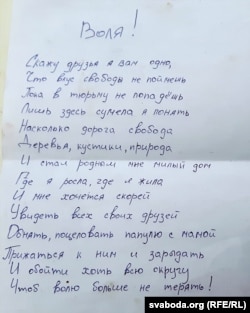 Воля!
Скажу друзья я вам одно,
Что вкус свободы не поймёшь
Пока в тюрьму не попадёшь
Лишь здесь сумела я понять
Насколько дорога свобода
Деревья, кустики, природа
И стал родном мне милый дом
Где я росла, где я жила
И мне хочется скорей
Увидеть всех своих друзей
Обнять, поцеловать папулю с мамой
Прижаться к ним и зарыдать
И обойти хоть всю округу
Чтоб волю больше не терять!
svaboda.org (RFE/RL)